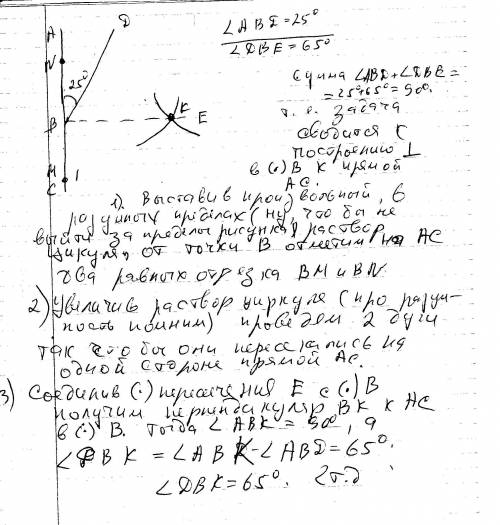 A
D
N
25°
B
K
E
M
1
C
∠ABD = 25°
∠DBE = 65°
Сумма ∠ABD + ∠DBE =
= 25° + 65° = 90°.
т. е. задача
сводится к
построению ⊥
в (·) B к прямой
AC.
1). Выставив произвольный, в
разумных пределах (ну, что бы не
выйти за пределы рисунка) раствор
циркуля, от точки B отметим на AC
два равных отрезка BM и BN.
2) Увеличив раствор циркуля (про разум-
ность помним) проведем 2 дуги
так что бы они пересекались на
одной стороне прямой AC.
3) Соединив (·) пересечения E с (·) B
получим перпендикуляр BK к AC
в (·) B. тогда ∠ABK = 90°, а
∠DBK = ∠ABK - ∠ABD = 65°.
∠DBK = 65°. чт.д